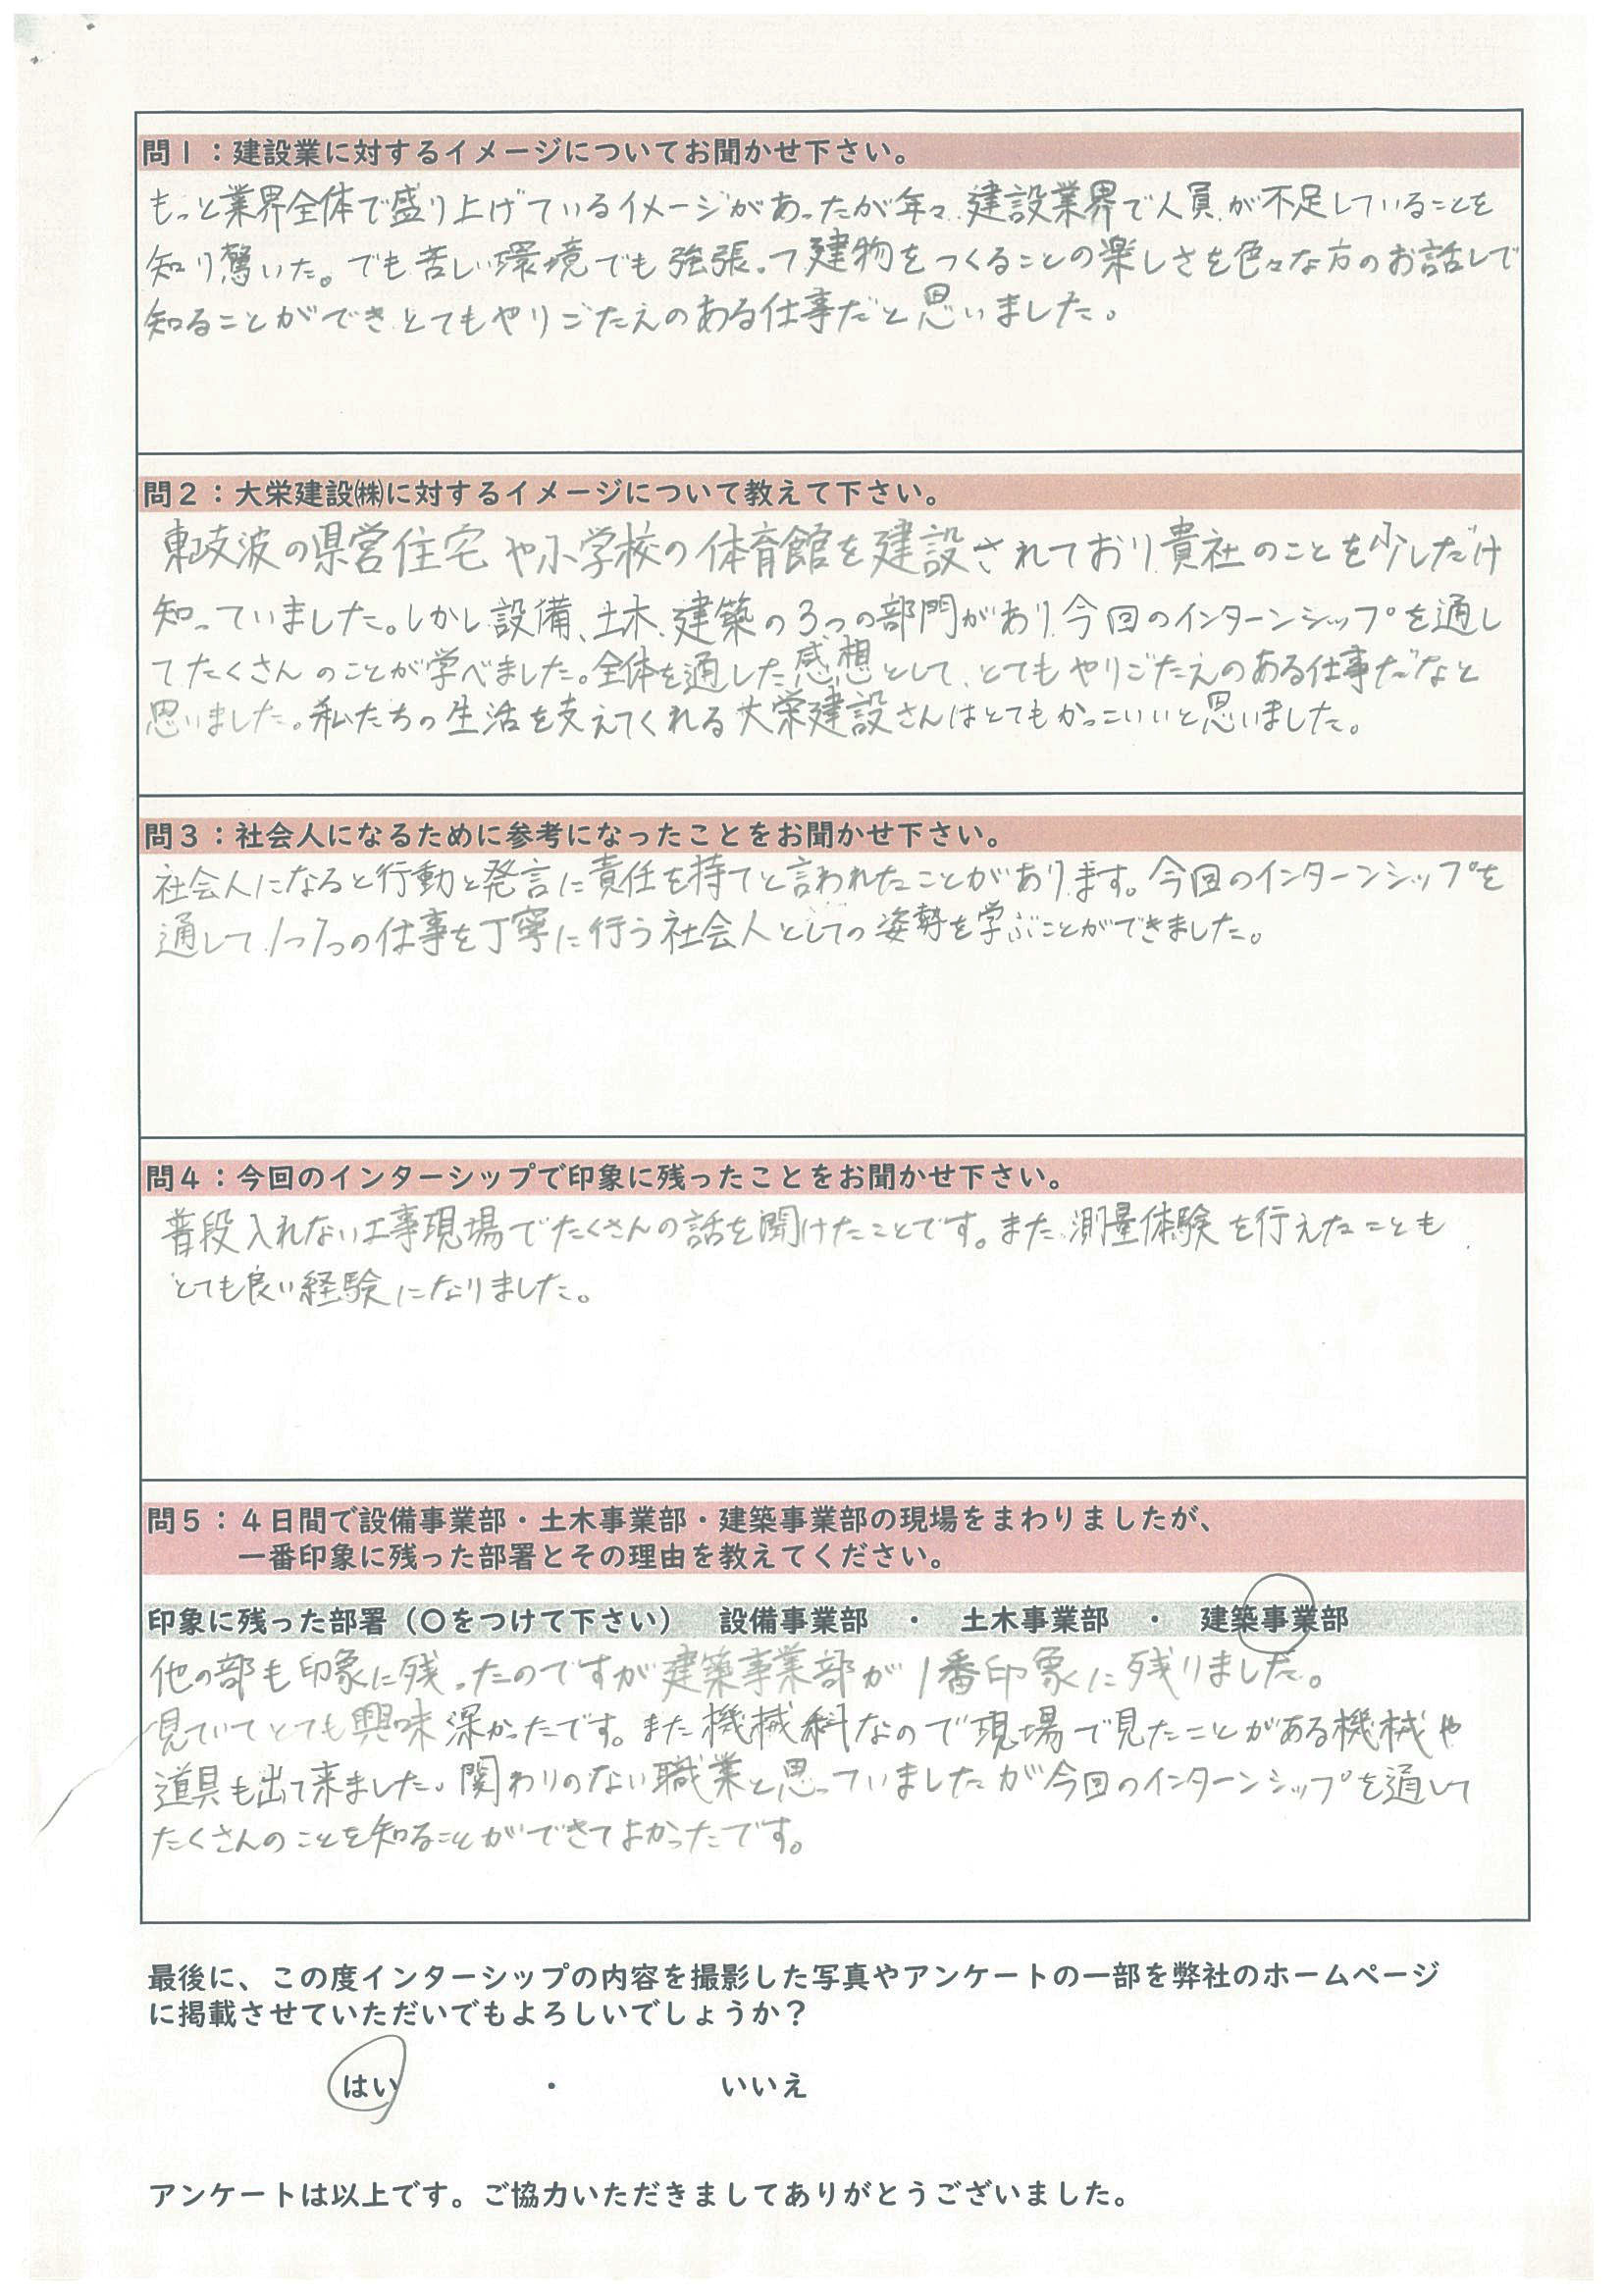 問1：建設業に対するイメージについてお聞かせ下さい。
もっと業界全体で盛り上げているイメージがあったが年々、建設業界で人員が不足していることを
知り驚いた。でも苦しい環境でも強張って建物をつくることの楽しさを色々な方のお話しで
知ることができ、とてもやりごたえのある仕事だと思いました。
問2：大栄建設㈱に対するイメージについて教えて下さい。
東岐波の県営住宅や小学校の体育館を建設されており、貴社のことを少しだけ
知っていました。しかし、設備、土木、建築の3つの部門があり、今回のインターンシップを通し
てたくさんのことが学べました。全体を通した感想として、とてもやりごたえのある仕事だなと
思いました。私たちの生活を支えてくれる大栄建設さんはとてもかっこいいと思いました。
問3：社会人になるために参考になったことをお聞かせ下さい。
社会人になると行動と発言に責任を持てと言われたことがあります。今回のインターンシップを
通して、1つ1つの仕事を丁寧に行う社会人としての姿勢を学ぶことができました。
問4：今回のインターシップで印象に残ったことをお聞かせ下さい。
普段入れない工事現場でたくさんの話を聞けたことです。また、測量体験を行えたことも
とても良い経験になりました。
問5：4日間で設備事業部・土木事業部・建築事業部の現場をまわりましたが、
一番印象に残った部署とその理由を教えてください。
印象に残った部署（〇をつけて下さい）　設備事業部　・　土木事業部　・　建築事業部
他の部も印象に残ったのですが建築事業部が1番印象に残りました。
見ていてとても興味深かったです。また機械科なので現場で見たことがある機械や
道具も出て来ました。関わりのない職業と思っていましたが今回のインターンシップを通して
たくさんのことを知ることができてよかったです。
最後に、この度インターシップの内容を撮影した写真やアンケートの一部を弊社のホームページ
に掲載させていただいでもよろしいでしょうか？
はい　・　いいえ
アンケートは以上です。ご協力いただきましてありがとうございました。